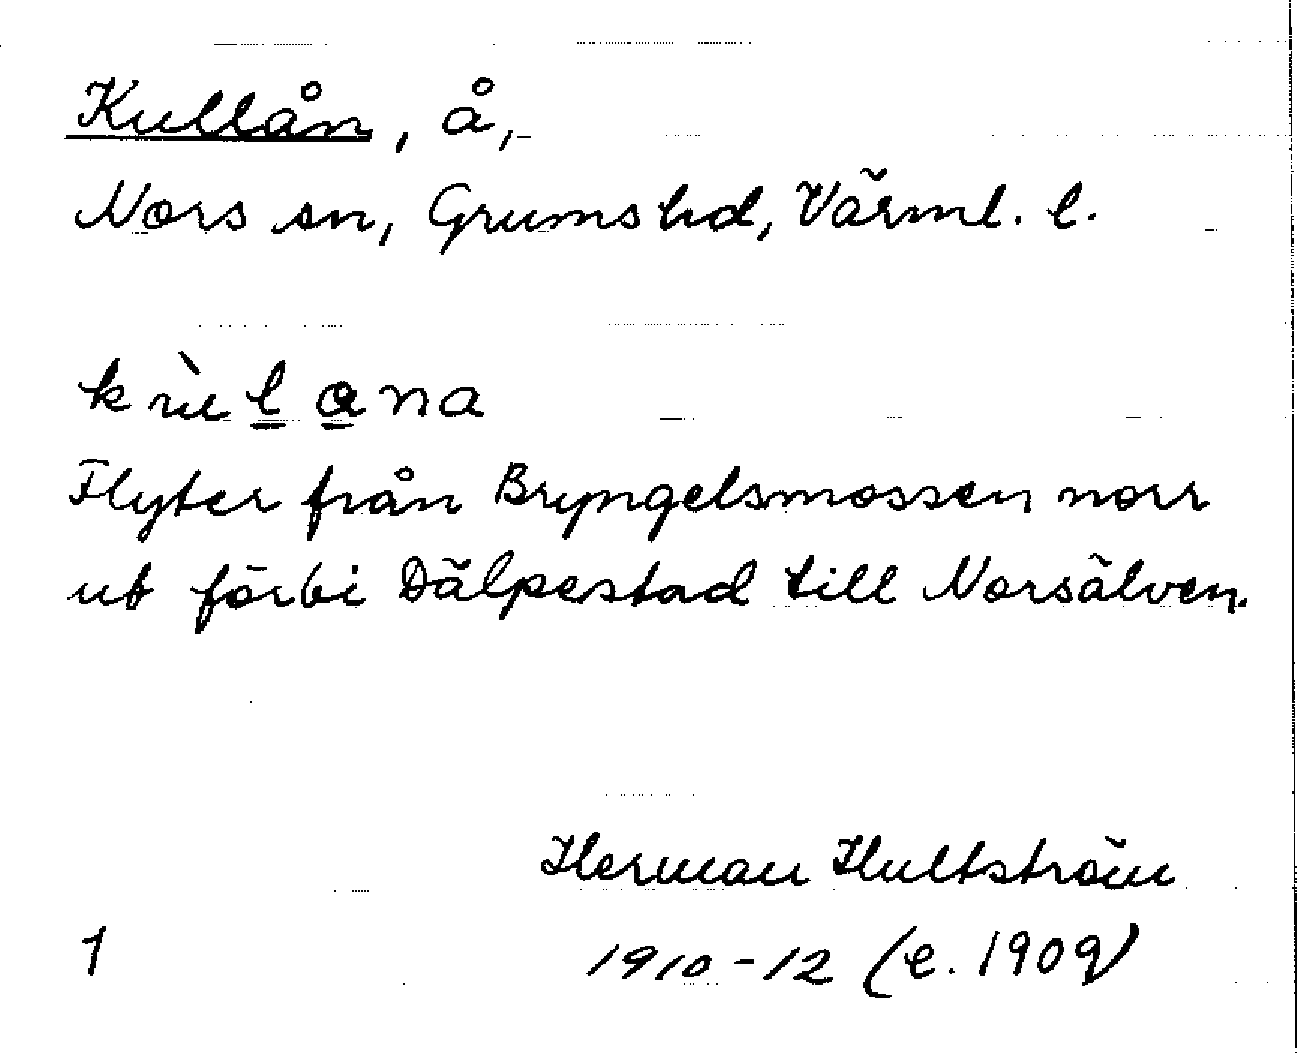 Kullån, å,
Nors sn, Grums hd, Värml. l.
kùlana
Flyter från Bryngelsmossen norr
ut förbi Dälpestad till Norsälven.
Herman Hultström
1 1910-12 (e. 1909)